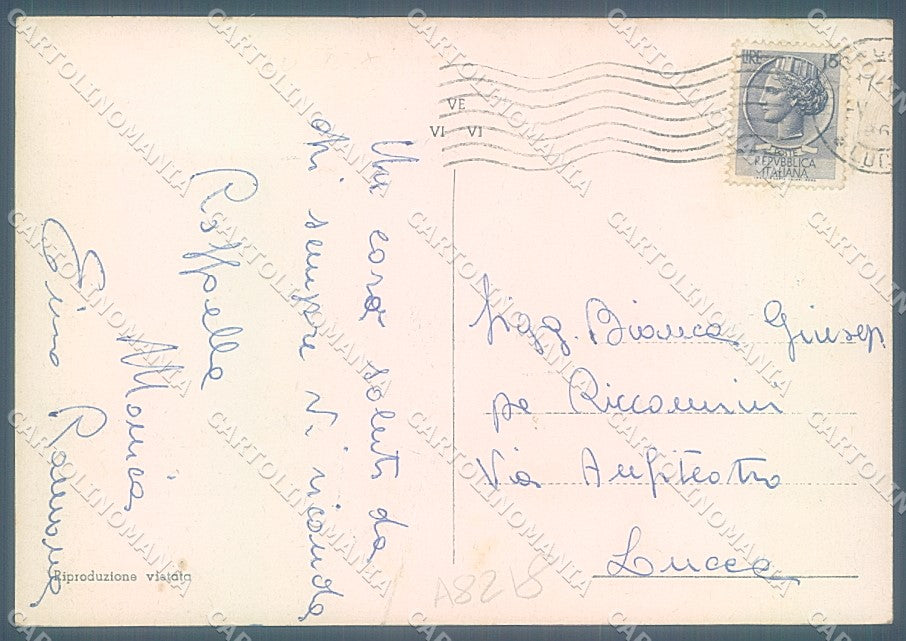 VE
VI VI
LIRE 15
POSTE
REPVBBLICA
ITALIANA
LUC
Un caro saluto da
chi sempre vi ricorda
Raffaella
Monica
Romano
Fagg. Bianca Giusep
pe Riccomini
Via Anfiteatro
Lucca
Riproduzione vietata
A8218
CARTOLINOMANIA